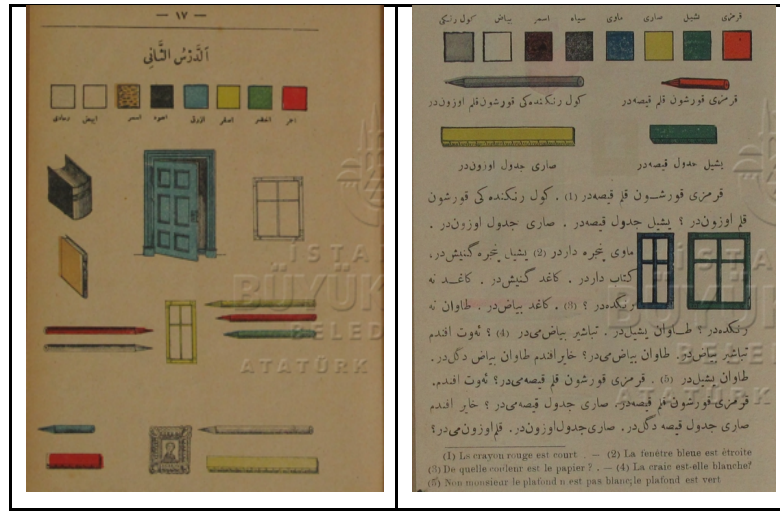 — ١٧ —
اَلدَّرْسُ الثَّانِي
احمر
اخضر
اصفر
ازرق
اسود
اسمر
ابيض
رمادى
قرمزى
يشيل
صارى
ماوى
سياه
اسمر
بياض
كول رنكى
قرمزى قورشون قلم قيصه‌در
كول رنكنده‌كى قورشون قلم اوزون‌در
يشيل جدول قيصه‌در
صارى جدول اوزون‌در
قرمزى قورشـون قلم قيصه‌در (1) . كول رنكنده كى قورشون
قلم اوزون‌در ؟ يشيل جدول قيصه‌در . صارى جدول اوزون‌در .
ماوى پنجره داردر (2) يشيل پنجره كنيش‌در،
كتاب داردر . كاغد كنيش‌در . كاغـد نه
رنكده‌در ؟ (3) . كاغد بياض‌در . طاوان نه
رنكده‌در ؟ طـاوان يشيل‌در . تباشير بياض‌مى‌در ؟ (4) ئه‌وت افندم
تباشير بياض‌در . طاوان بياض‌مى‌در ؟ خاير افندم طاوان بياض دكل‌در.
طاوان يشيل‌در (5) . قرمزى قورشون قلم قيصه‌مى‌در ؟ ئه‌وت افندم.
قرمزى قورشون قلم قيصه‌در. صارى جدول قيصه‌مى‌در ؟ خاير افندم
صارى جدول قيصه دكل‌در . صارى‌جدول‌اوزون‌در . قلم‌اوزون‌مى‌در؟
(1) Le crayon rouge est court . — (2) La fenêtre bleue est étroite
(3) De quelle couleur est le papier ? . — (4) La craie est-elle blanche?
(5) Non monsieur le plafond n est pas blanc;le plafond est vert
İSTA
BÜYÜK
BELED
ATATÜRK
İSTA
BÜYÜK
BELE
ATATÜRK